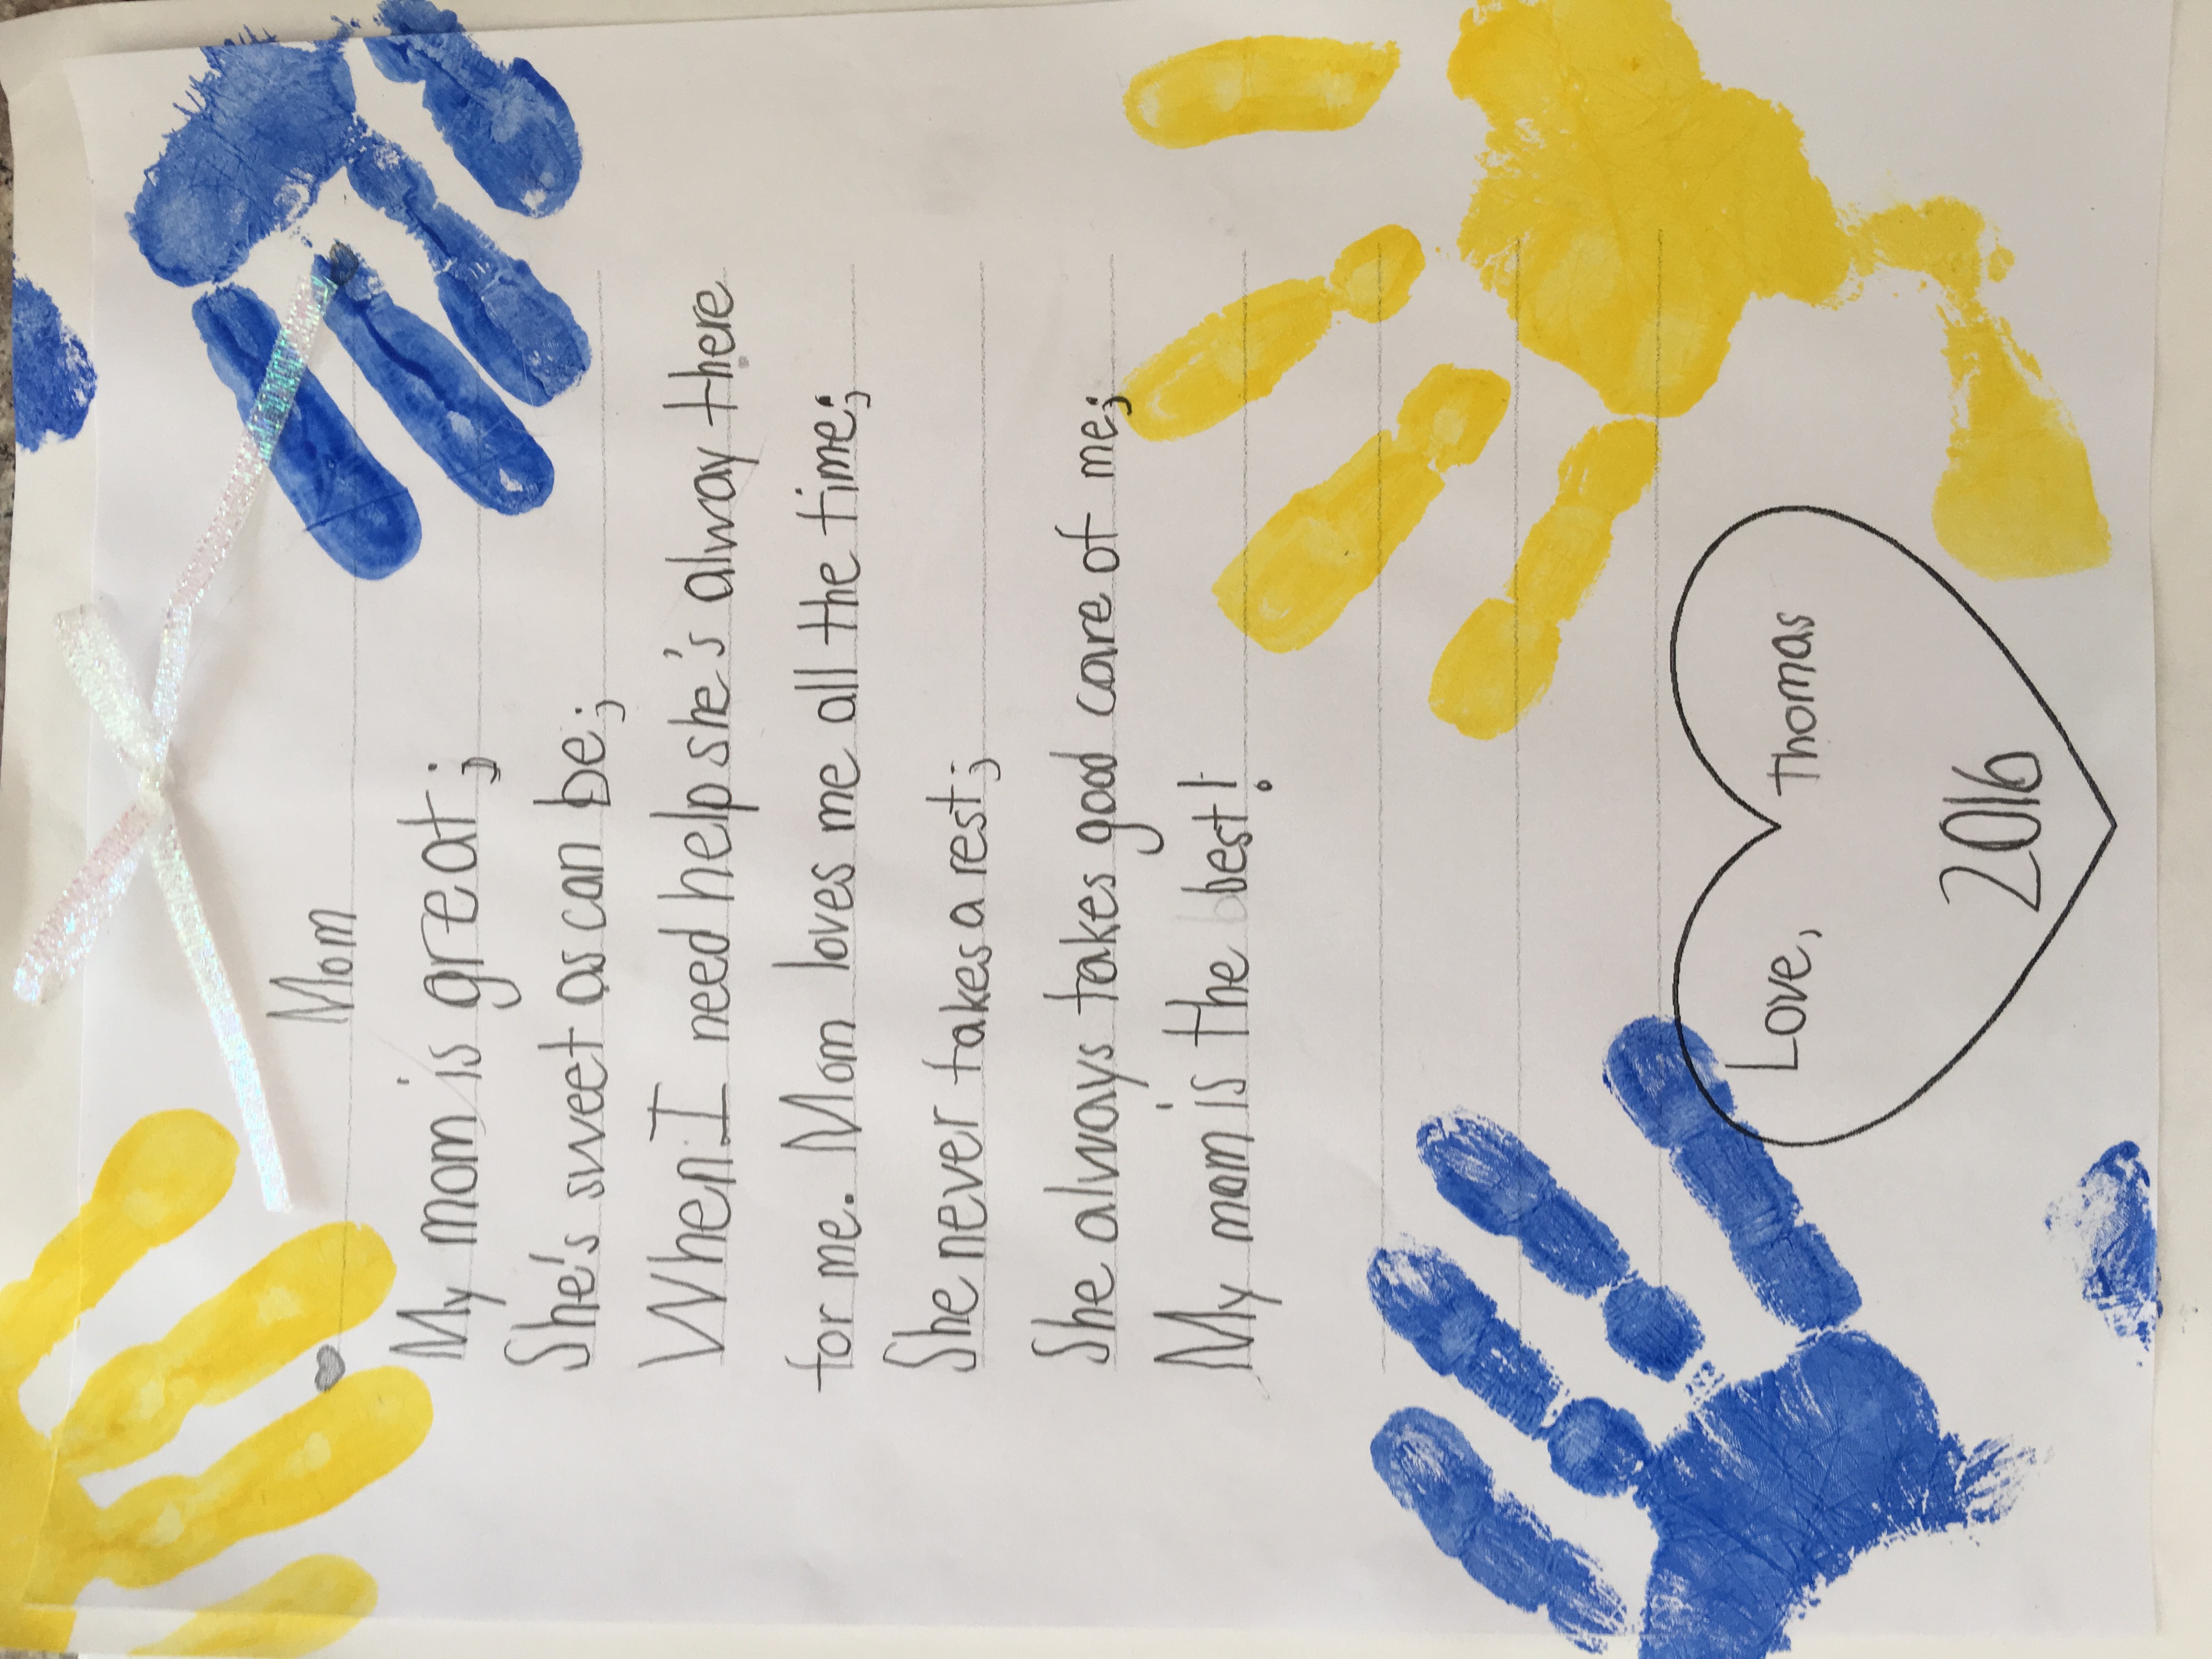 Mom
My mom is great;
She's sweet as can be;
When I need help she's alway there
for me. Mom loves me all the time;
She never takes a rest;
She always takes good care of me;
My mom is the best!
Love, Thomas
2016